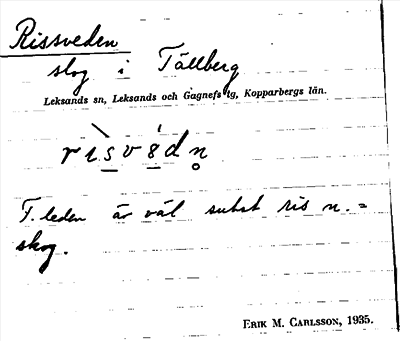 Rissveden
skog i Tällberg
Leksands sn, Leksands och Gagnefs tg, Kopparbergs län.
rìsv8́dn̥
F. leden är väl subst ris n. =
skog.
ERIK M. CARLSSON, 1935.